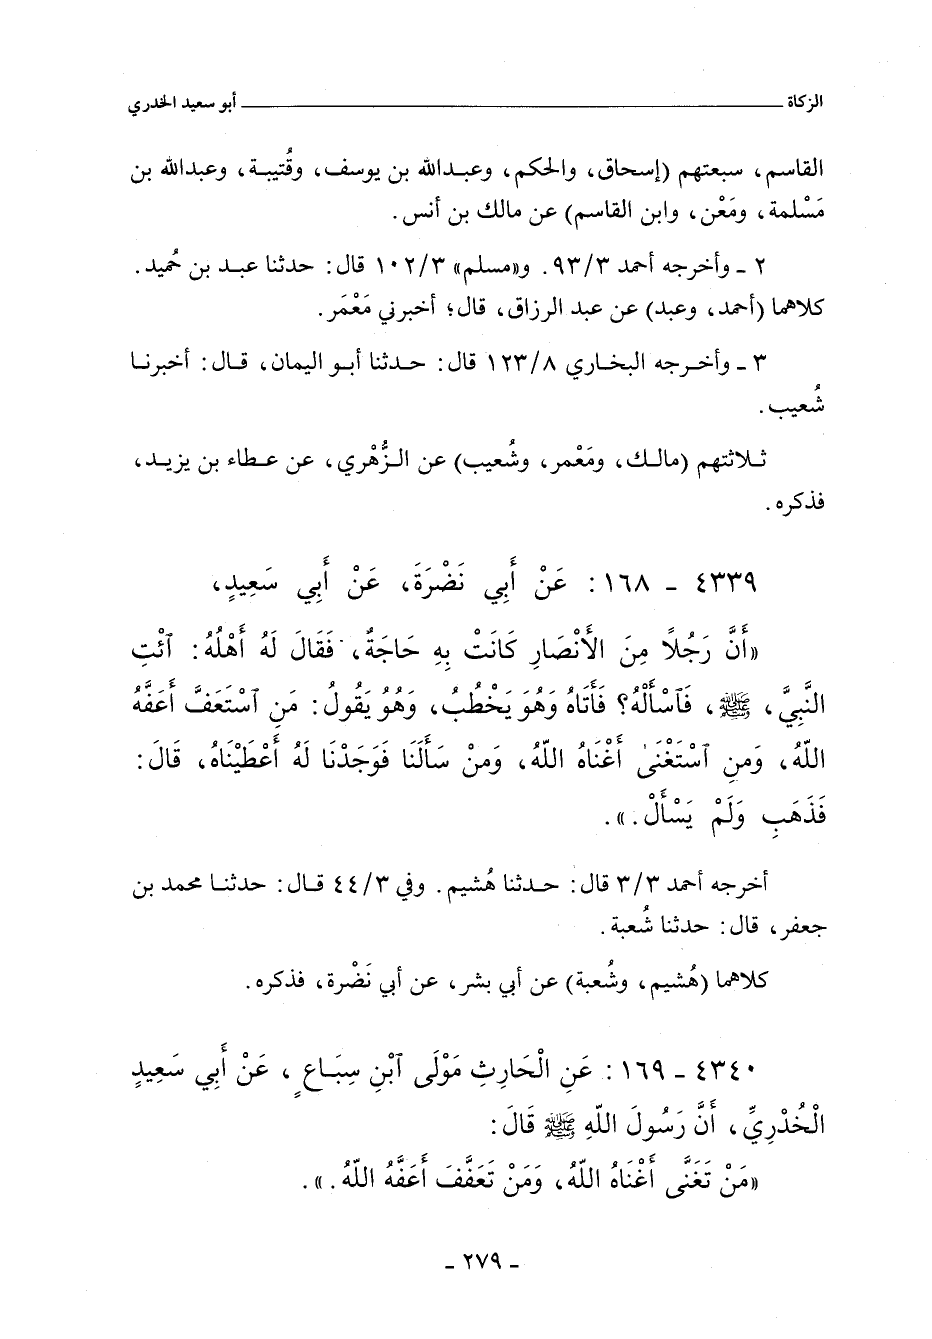 الزكاة ــــــــــــــــــــ أبو سعيد الخدري
القاسم، سبعتهم (إسحاق، والحكم، وعبدالله بن يوسف، وقُتيبة، وعبدالله بن
مَسْلمة، ومَعْن، وابن القاسم) عن مالك بن أنس.
٢ ـ وأخرجه أحمد ٩٣/٣. و«مسلم» ١٠٢/٣ قال: حدثنا عبد بن حُميد.
كلاهما (أحمد، وعبد) عن عبد الرزاق، قال؛ أخبرني مَعْمَر.
٣ ـ وأخرجه البخاري ١٢٣/٨ قال: حدثنا أبو اليمان، قال: أخبرنا
شُعيب.
ثلاثتهم (مالك، ومَعْمر، وشُعيب) عن الزُّهْري، عن عطاء بن يزيد،
فذكره.
٤٣٣٩ ـ ١٦٨: عَنْ أَبِي نَضْرَةَ، عَنْ أَبِي سَعِيدٍ،
«أَنَّ رَجُلاً مِنَ الأَنْصَارِ كَانَتْ بِهِ حَاجَةٌ، فَقَالَ لَهُ أَهْلُهُ: ٱئْتِ
النَّبِيَّ، ﷺ، فَٱسْأَلْهُ؟ فَأَتَاهُ وَهُوَ يَخْطُبُ، وَهُوَ يَقُولُ: مَنِ ٱسْتَعَفَّ أَعَفَّهُ
اللّهُ، وَمَنِ ٱسْتَغْنَىٰ أَغْنَاهُ اللّهُ، وَمَنْ سَأَلَنَا فَوَجَدْنَا لَهُ أَعْطَيْنَاهُ، قَالَ:
فَذَهَبِ وَلَمْ يَسْأَلْ.».
أخرجه أحمد ٣/٣ قال: حدثنا هُشيم. وفي ٤٤/٣ قال: حدثنا محمد بن
جعفر، قال: حدثنا شُعبة.
كلاهما (هُشيم، وشُعبة) عن أبي بشر، عن أبي نَضْرة، فذكره.
٤٣٤٠ ـ ١٦٩: عَنِ الْحَارِثِ مَوْلَى ٱبْنِ سِبَاعٍ، عَنْ أَبِي سَعِيدٍ
الْخُدْرِيِّ، أَنَّ رَسُولَ اللّهِ ﷺ قَالَ:
«مَنْ تَغَنَّى أَغْنَاهُ اللّهُ، وَمَنْ تَعَفَّفَ أَعَفَّهُ اللّهُ.».
ـ ٢٧٩ ـ